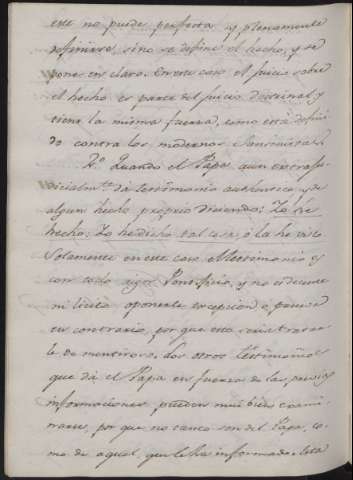 este no puede perfecta, y plenamente
definirse, sino se define el hecho, y se
pone en claro. En este caso el juicio sobre
el hecho es parte del juicio doctrinal y
tiene la misma fuerza, como está defini
do contra los modernos Jansenistas.
Rº Quando el Papa aun extraju-
dicialmte da testimonio authentico, y de
algun hecho proprio diciendo: Yo he
hecho: Yo he dicho tal cosa ó la he visto
Solamente en este caso el testimonio es
con todo rigor Pontificio, y no es decente
ni licito oponerle excepcion ó prueba
en contrario, por que esto seria tratar
le de mentiroso. Los otros testimonios
que dá el Papa en fuerza de las previas
informaciones pueden mui bien exami
narse, por que no tanto son del Papa, co
mo de aquel, que le ha informado. Esta